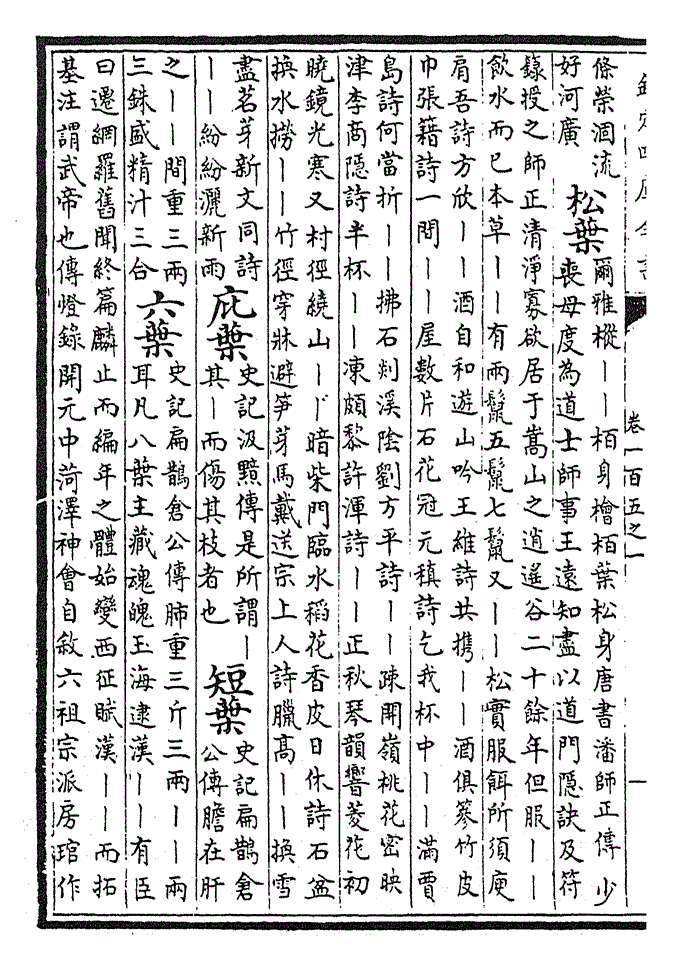 欽定四庫全書
卷一百五之一
一
條榮涸流
好河廣
松葉
爾雅樅丨丨栢身檜栢葉松身唐書潘師正傳少
喪母度為道士師事王遠知盡以道門隱訣及符
籙授之師正清淨寡欲居于嵩山之逍遙谷二十餘年但服丨丨
飲水而已本草丨丨有兩鬛五鬛七鬛又丨丨松實服餌所須庾
肩吾詩方欣丨丨酒自和遊山吟王維詩共攜丨丨酒俱篸竹皮
巾張籍詩一間丨丨屋數片石花冠元稹詩乞我杯中丨丨滿賈
島詩何當折丨丨拂石剡溪陰劉方平詩丨丨疎開嶺桃花密映
津李商隱詩半杯丨丨凍頗黎許渾詩丨丨正秋琴韻響菱花初
曉鏡光寒又村徑繞山丨丨暗柴門臨水稻花香皮日休詩石盆
換水撈丨丨竹徑穿牀避笋芽馬戴送宗上人詩臘高丨丨換雪
盡茗芽新文同詩
丨丨紛紛灑新雨
庇葉
史記汲黯傳是所謂丨
其丨而傷其枝者也
短葉
史記扁鵲倉
公傳膽在肝
之丨丨間重三兩
三銖盛精汁三合
六葉
史記扁鵲倉公傳肺重三斤三兩丨丨兩
耳凡八葉主藏魂魄玉海逮漢丨丨有臣
曰遷網羅舊聞終篇麟止而編年之體始變西征賦漢丨丨而拓
基注謂武帝也傳燈錄開元中菏澤神會自敘六祖宗派房琯作